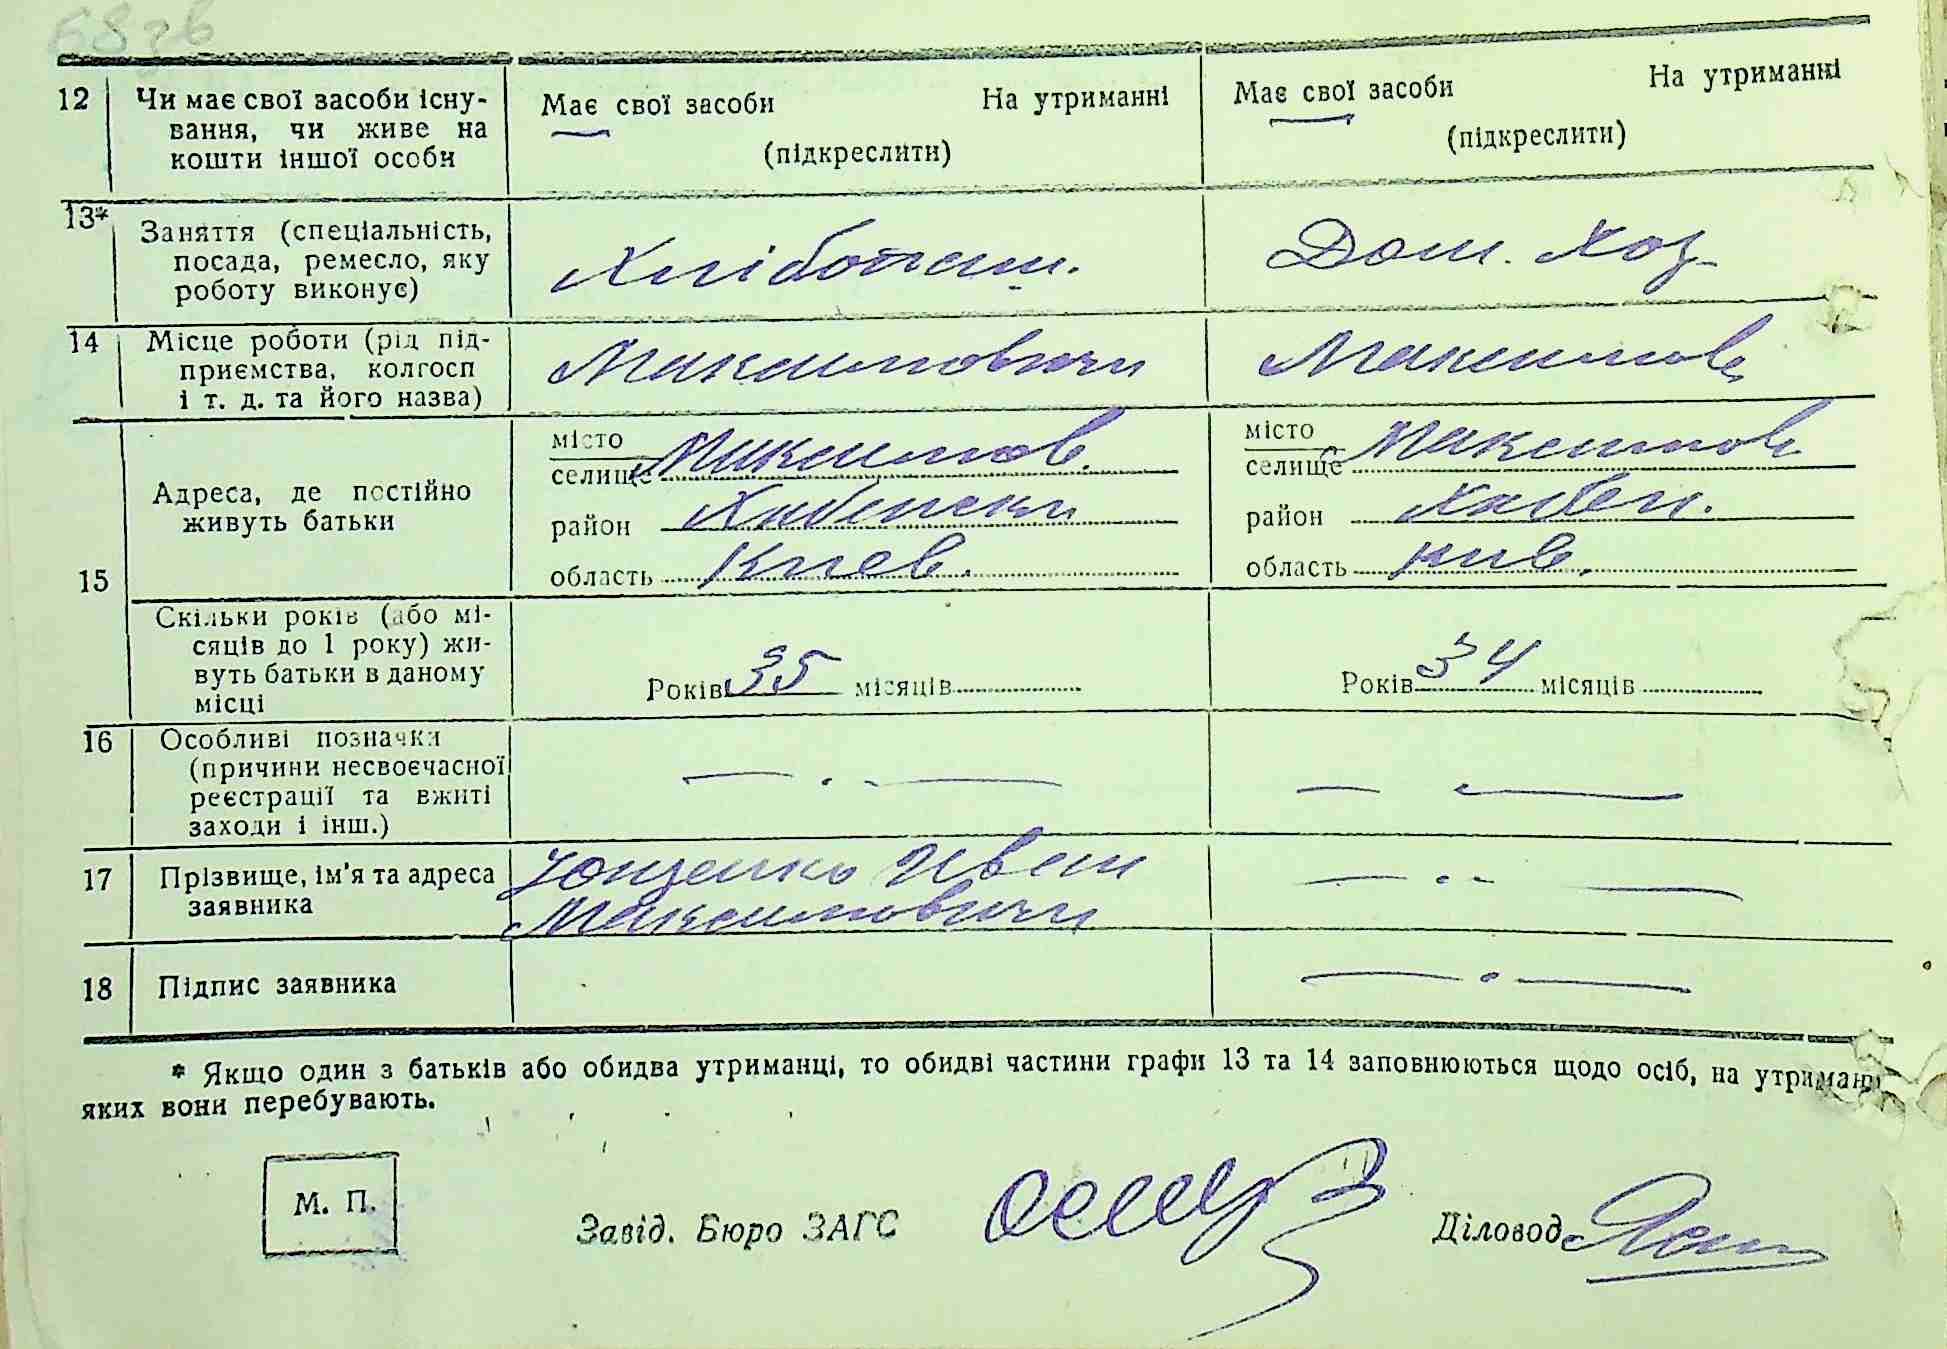 12 Чи має свої засоби існу-
вання, чи живе на
кошти іншої особи
Має свої засоби На утриманні
(підкреслити)
Має свої засоби На утриманні
(підкреслити)
13* Заняття (спеціальність,
посада, ремесло, яку
роботу виконує)
Хлібопаш.
Дом. Хоз
14 Місце роботи (рід під-
приємства, колгосп
і т. д. та його назва)
Максимовичи
Максимов
15
Адреса, де постійно
живуть батьки
місто
селище Максимов.
район Хабенски
область Киев.
місто
селище Максимов
район Хабен.
область Кив.
Скільки років (або мі-
сяців до 1 року) жи-
вуть батьки в даному
місці
Років 35 місяців
Років 34 місяців
16 Особливі позначки
(причини несвоєчасної
реєстрації та вжиті
заходи і інш.)
17 Прізвище, ім'я та адреса
заявника
Ющенко Иван
Максимовичи
18 Підпис заявника
* Якщо один з батьків або обидва утриманці, то обидві частини графи 13 та 14 заповнюються щодо осіб, на утриманні
яких вони перебувають.
М. П.
Завід. Бюро ЗАГС
Діловод